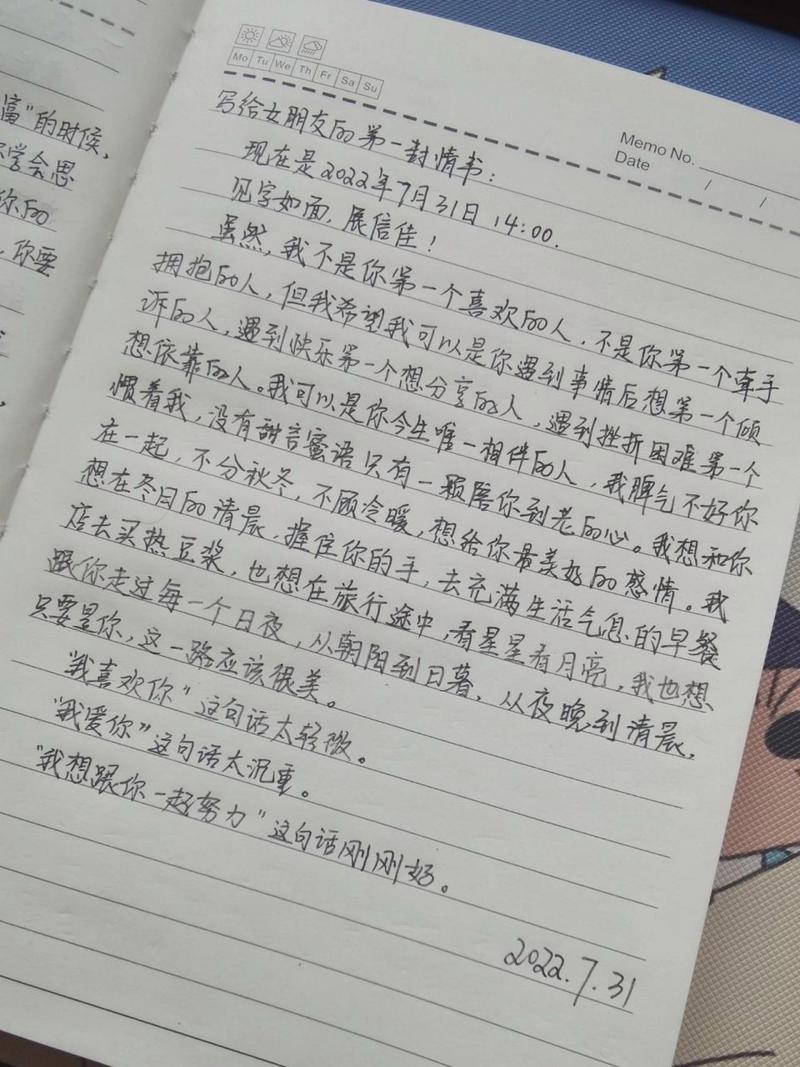 富"的时候,
学会思
你的
,你要
Mo Tu We Th Fr Sa Su
Memo No.
Date / /
写给女朋友的第一封情书:
现在是2022年7月31日 14:00.
见字如面,展信佳!
虽然,我不是你第一个喜欢的人,不是你第一个牵手
拥抱的人,但我希望我可以是你遇到事情后想第一个倾
诉的人,遇到快乐第一个想分享的人,遇到挫折困难第一个
想依靠的人。我可以是你今生唯一相伴的人,我脾气不好你
惯着我,没有甜言蜜语只有一颗陪你到老的心。我想和你
在一起,不分秋冬,不顾冷暖,想给你最美好的感情。我
想在冬日的清晨,握住你的手,去充满生活气息的早餐
店去买热豆浆,也想在旅行途中,看星星看月亮,我也想
跟你走过每一个日夜,从朝阳到日暮,从夜晚到清晨,
只要是你,这一路应该很美。
"我喜欢你"这句话太轻微。
"我爱你"这句话太沉重。
"我想跟你一起努力"这句话刚刚好。
2022.7.31